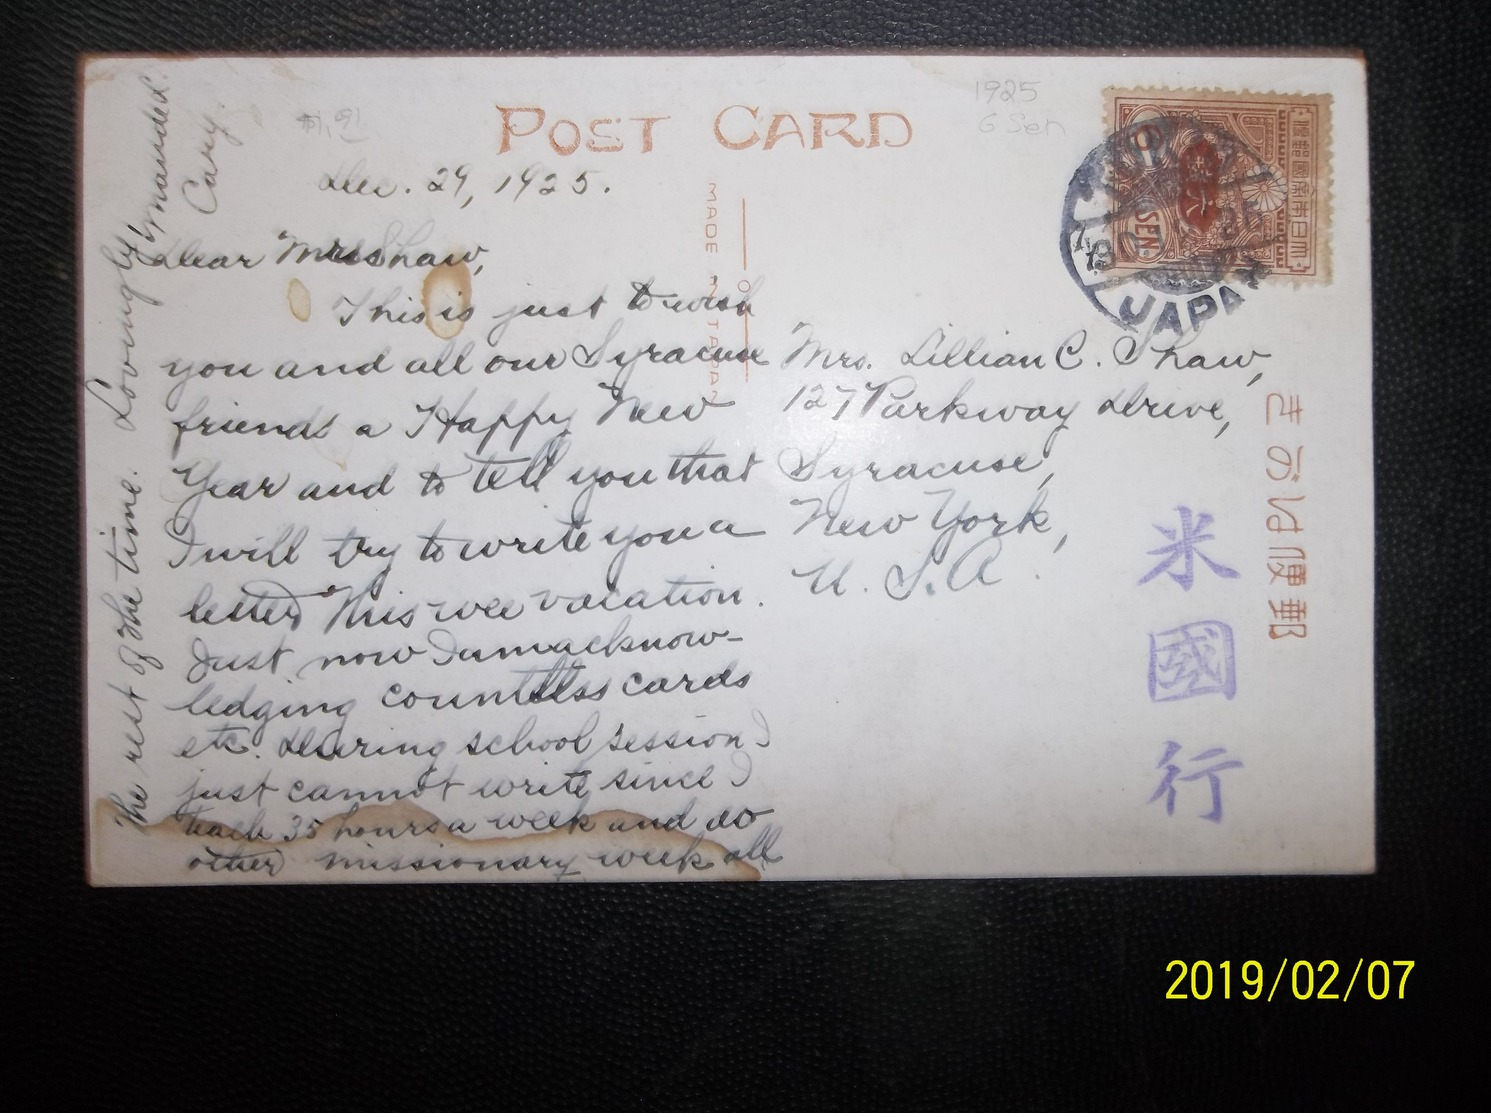 POST CARD
1925
6 Sen
$1.91
Dec. 29, 1925.
Dear Mrs Shaw,
This is just to wish
you and all our Syracuse
friends a Happy New
Year and to tell you that
I will try to write you a
letter this wee vacation.
Just now I am acknow-
ledging countless cards
etc. During school session I
just cannot write since I
teach 35 hours a week and do
other missionary work all
the rest of the time. Lovingly
Cary.
MADE IN JAPAN
Mrs. Lillian C. Shaw,
127 Parkway Drive,
Syracuse,
New York,
U.S.A.
大日本帝國郵便
六
6
SEN
JAPAN
郵便はかき
米國行
2019/02/07